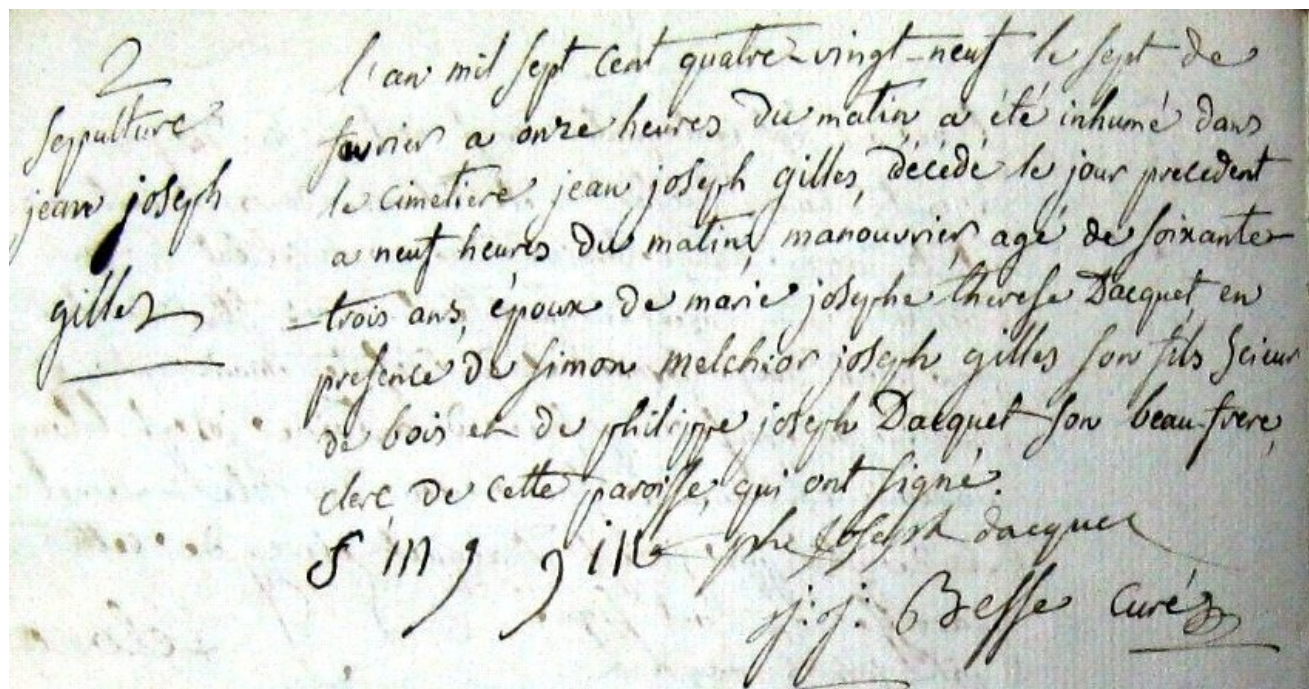 2
Sepulture
jean joseph
gilles
l'an mil sept cent quatre-vingt-neuf le sept de
fevrier a onze heures du matin a été inhumé dans
le cimetiere jean joseph gilles, décédé le jour precedent
a neuf heures du matin, manouvrier agé de soixante-
-trois ans, époux de marie josephe therese Dacquet, en
presence de simon melchior joseph gilles son fils scieur
de bois et de philippe joseph Dacquet son beau-frere,
clerc de cette paroisse, qui ont signé.
S m j gille phe Joseph dacquet
j: j: Besse curé